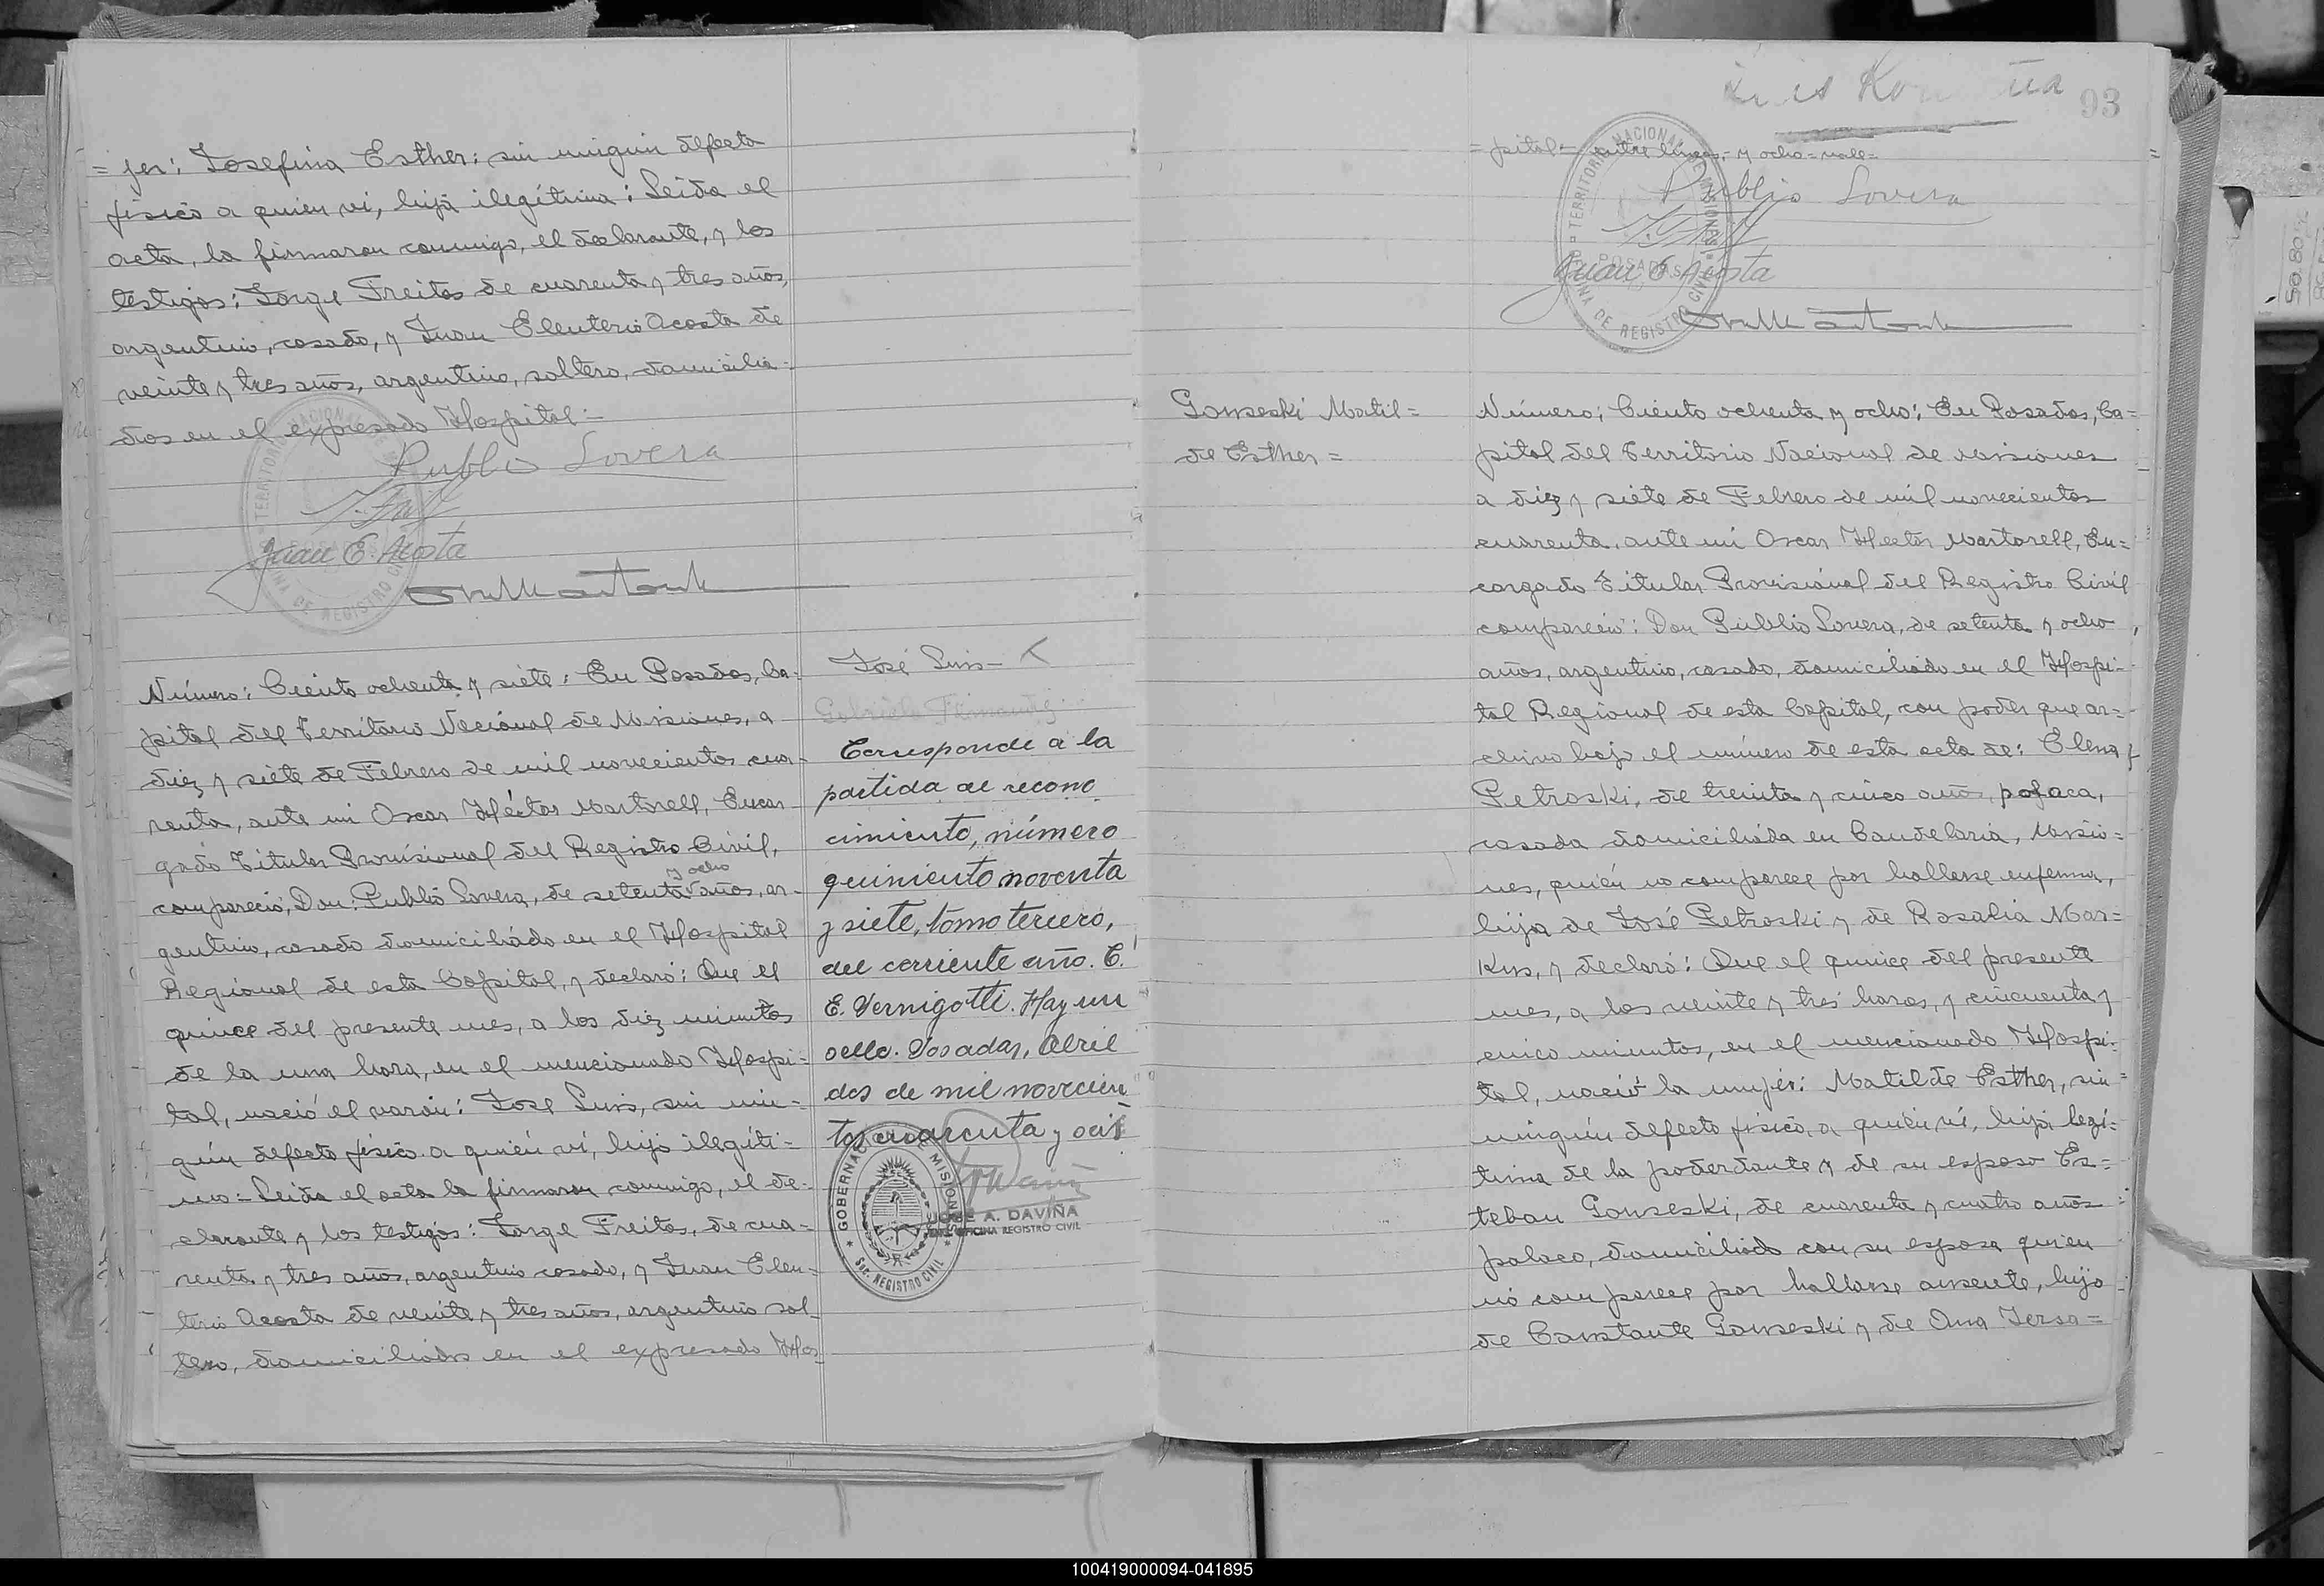 = jer: Josefina Esther: sin ningún defecto
físico a quien vi, hija ilegítima: Leída el
acta, la firmaron conmigo, el declarante, y los
testigos: Jorge Freitas de cuarenta y tres años,
argentino, casado, y Juan Eleuterio Acosta de
veinte y tres años, argentino, soltero, domicilia=
dos en el expresado Hospital=
Publio Lovera
Juan E. Acosta
Número: Ciento ochenta y siete: En Posadas, Ca=
pital del Territorio Nacional de Misiones, a
diez y siete de Febrero de mil novecientos cua=
renta, ante mi Oscar Héctor Martorell, Encar
gado Titular Provisional del Registro Civil,
y ocho
compareció, Don: Publio Lovera, de setenta años, ar=
gentino, casado domiciliado en el Hospital
Regional de esta Capital, y declaró: Que el
quince del presente mes, a los diez minutos
de la una hora, en el mencionado Hospi=
tal, nació el varón: Jose Luis, sin nin=
gún defecto físico a quién ví, hijo ilegíti=
mo=Leída el acta la firmaron conmigo, el de=
clarante y los testigos: Jorge Freitas, de cua=
renta y tres años, argentino casado, y Juan Eleu=
terio Acosta de veinte y tres años, argentino sol
tero, domiciliados en el expresado Hos=
José Luis=
Gabriela
Corresponde a la
partida de recono
cimiento, número
quiniento noventa
y siete, tomo tercero,
del corriente año. C.
E. Vernigotti. Hay un
sello. Posadas, Abril
dos de mil novecien
tos cuarenta y
GOBERNACION DE MISIONES
JOSE A. DAVIÑA
JEFE OFICINA REGISTRO CIVIL
Sec. REGISTRO CIVIL
93
=pital= entre líneas=y ocho=vale=
Publio Lovera
Juan E Acosta
TERRITORIO NACIONAL DE MISIONES
POSADAS
OFICINA DE REGISTRO CIVIL
Gonseski Matil=
de Esther=
Número: Ciento ochenta y ocho: En Posadas, Ca=
pital del Territorio Nacional de Misiones
a diez y siete de Febrero de mil novecientos
cuarenta, ante mi Oscar Héctor Martorell, En=
cargado Titular Provisional del Registro Civil
compareció: Don Publio Lovera, de setenta y ocho
años, argentino, casado, domiciliado en el Hospi=
tal Regional de esta Capital, con poder que ar=
chivo bajo el número de esta acta de: Elena
Petroski, de treinta y cinco años, polaca,
casada domiciliada en Candelaria, Misio=
nes, quién no comparece por hallarse enferma,
hija de José Petroski y de Rosalia Mar=
Kus, y declaró: Que el quince del presente
mes, a las veinte y tres horas, y cincuenta y
cinco minutos, en el mencionado Hospi=
tal, nació la mujer: Matilde Esther, sin
ningún defecto físico, a quién ví, hija legí=
tima de la poderdante y de su esposo Es=
teban Gonseski, de cuarenta y cuatro años
polaco, domiciliado con su esposa quien
no comparece por hallarse ausente, hijo
de Constante Gonseski y de Ana Jersa=
100419000094-041895